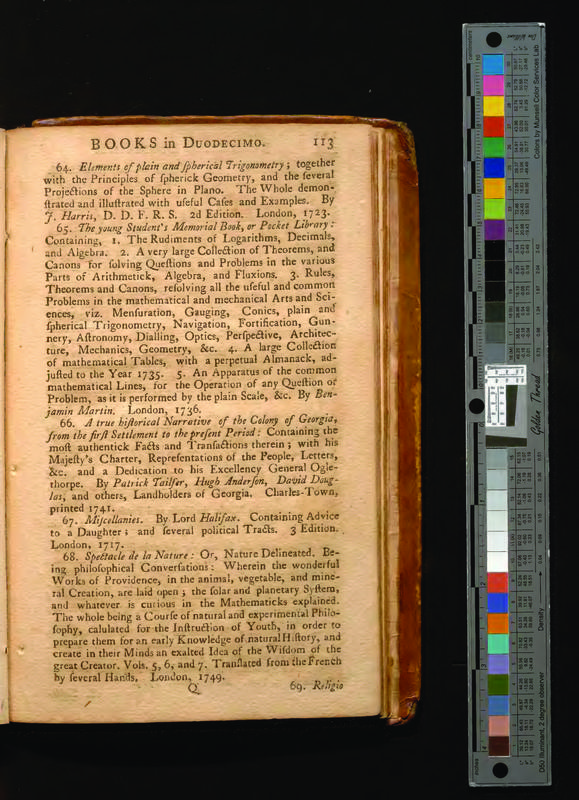 BOOKS in DUODECIMO. 113
64. Elements of plain and ſpherical Trigonometry; together
with the Principles of ſpherick Geometry, and the ſeveral
Projections of the Sphere in Plano. The Whole demon-
ſtrated and illuſtrated with uſeful Caſes and Examples. By
J. Harris, D. D. F. R. S. 2d Edition. London, 1723.
65. The young Student's Memorial Book, or Pocket Library:
Containing, 1. The Rudiments of Logarithms, Decimals,
and Algebra. 2. A very large Collection of Theorems, and
Canons for ſolving Queſtions and Problems in the various
Parts of Arithmetick, Algebra, and Fluxions. 3. Rules,
Theorems and Canons, reſolving all the uſeful and common
Problems in the mathematical and mechanical Arts and Sci-
ences, viz. Menſuration, Gauging, Conics, plain and
ſpherical Trigonometry, Navigation, Fortification, Gun-
nery, Aſtronomy, Dialling, Optics, Perſpective, Architec-
ture, Mechanics, Geometry, &c. 4. A large Collection
of mathematical Tables, with a perpetual Almanack, ad-
juſted to the Year 1735. 5. An Apparatus of the common
mathematical Lines, for the Operation of any Queſtion or
Problem, as it is performed by the plain Scale, &c. By Ben-
jamin Martin. London, 1736.
66. A true hiſtorical Narrative of the Colony of Georgia,
from the firſt Settlement to the preſent Period: Containing the
moſt authentick Facts and Tranſactions therein; with his
Majeſty's Charter, Repreſentations of the People, Letters,
&c. and a Dedication to his Excellency General Ogle-
thorpe. By Patrick Tailfer, Hugh Anderſon, David Doug-
las, and others, Landholders of Georgia. Charles-Town,
printed 1741.
67. Miſcellanies. By Lord Halifax. Containing Advice
to a Daughter; and ſeveral political Tracts. 3 Edition.
London, 1717.
68. Spectacle de la Nature: Or, Nature Delineated. Be-
ing philoſophical Converſations: Wherein the wonderful
Works of Providence, in the animal, vegetable, and mine-
ral Creation, are laid open; the ſolar and planetary Syſtem,
and whatever is curious in the Mathematicks explained.
The whole being a Courſe of natural and experimental Philo-
ſophy, calulated for the Inſtruction of Youth, in order to
prepare them for an early Knowledge of natural Hiſtory, and
create in their Minds an exalted Idea of the Wiſdom of the
great Creator. Vols. 5, 6, and 7. Tranſlated from the French
by ſeveral Hands. London, 1749.
Q 69. Religio
Colors by Munsell Color Services Lab
Golden Thread
Density
D50 Illuminant, 2 degree observer